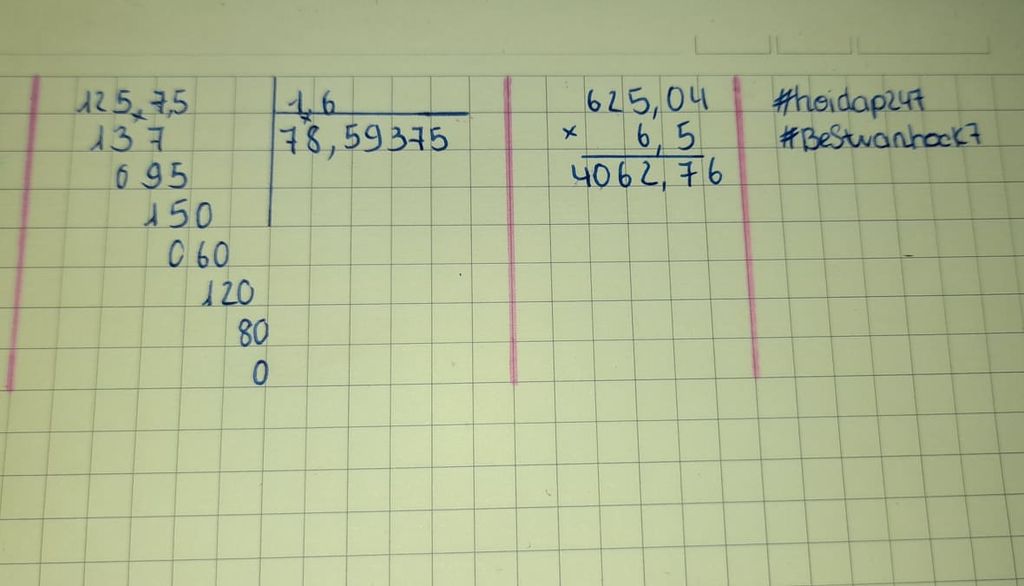 125,7,5 1,6
137 78,59375
095
150
060
120
80
0
625,04
× 6,5
4062,76
#hoidap247
#Bestwanhock7